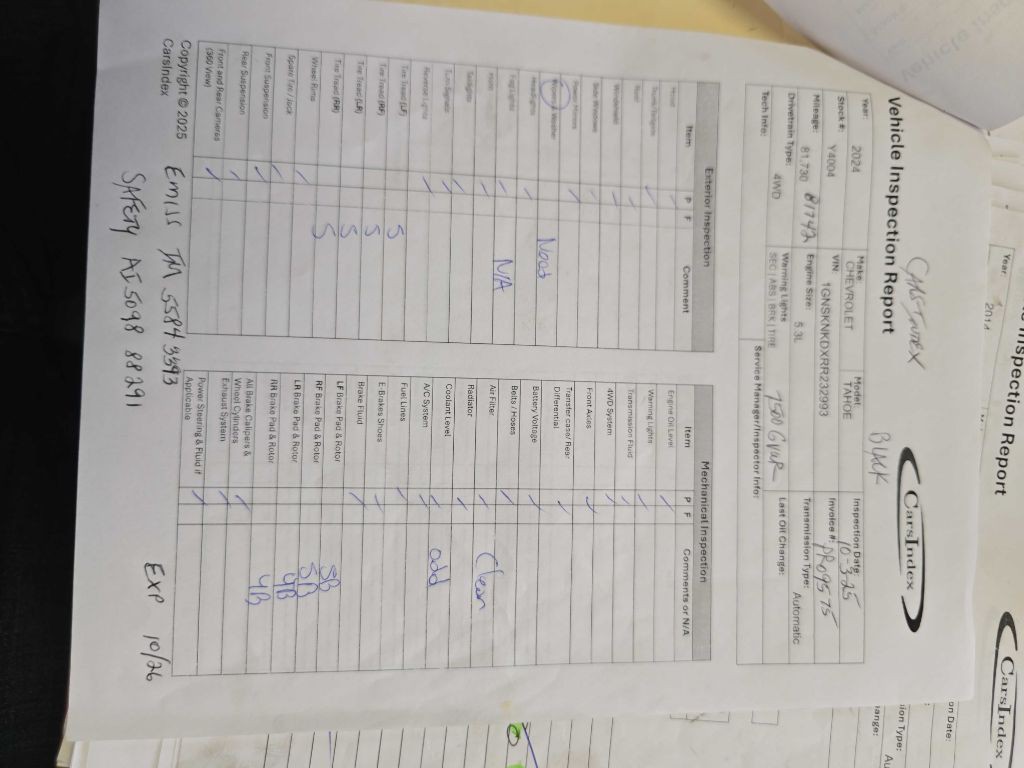 Vehicle Inspection Report
CarsIndex
BLACK
Year: 2024
Make: CHEVROLET
Model: TAHOE
Inspection Date: 10-3-25
Stock #: Y4004
VIN: 1GNSKNKDXRR232993
Invoice #: PR09575
Mileage: 81,730 81742
Engine Size: 5.3L
Transmission Type: Automatic
Drivetrain Type: 4WD
Warning Lights SEC | ABS | BRK | TIRE
7500 GVWR
Last Oil Change:
Tech Info:
Service Manager/Inspector Info:
Exterior Inspection
Item P F Comment
Hood
Roof
Windshield
Side Windows
Power Mirrors
Headlights
Fog Lights N/A
Horn
Taillights
Turn Signals
Reverse Lights
Tire Tread (LF) 5
Tire Tread (RF) 5
Tire Tread (LR) 5
Tire Tread (RR) 5
Wheel Rims
Spare Tire / Jack
Front Suspension
Rear Suspension
Front and Rear Cameras
(360 View)
Mechanical Inspection
Item P F Comments or N/A
Engine Oil Level
Warning Lights
Transmission Fluid
4WD System
Front Axles
Transfer case/ Rear
Differential
Battery Voltage
Belts / Hoses
Air Filter Clean
Radiator
Coolant Level add
A/C System
Fuel Lines
E Brakes Shoes
Brake Fluid
LF Brake Pad & Rotor 5B
RF Brake Pad & Rotor 5B
LR Brake Pad & Rotor 4B
RR Brake Pad & Rotor 4B
All Brake Calipers &
Wheel Cylinders
Exhaust System
Power Steering & Fluid if
Applicable
Copyright © 2025
CarsIndex
Emiss IM 5584 3393
SAFETY AI 5098 88291
EXP 10/26
Inspection Report
Year: 2014
CarsIndex